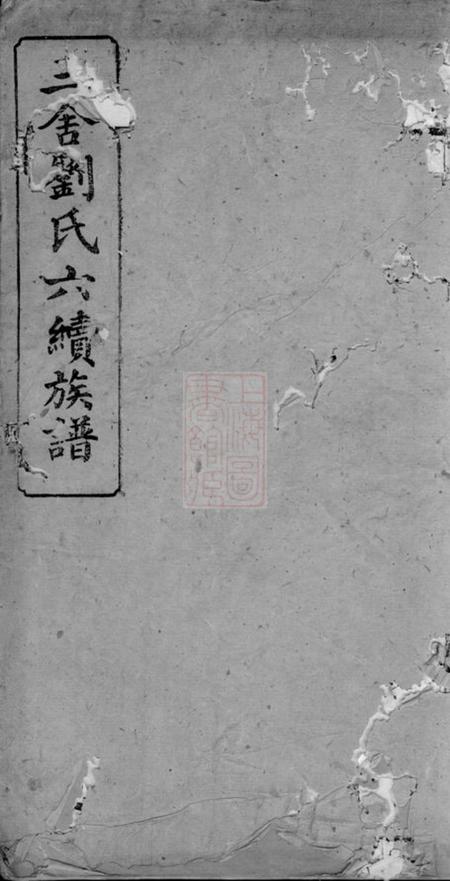 三舍劉氏六續族譜
上海圖書館藏